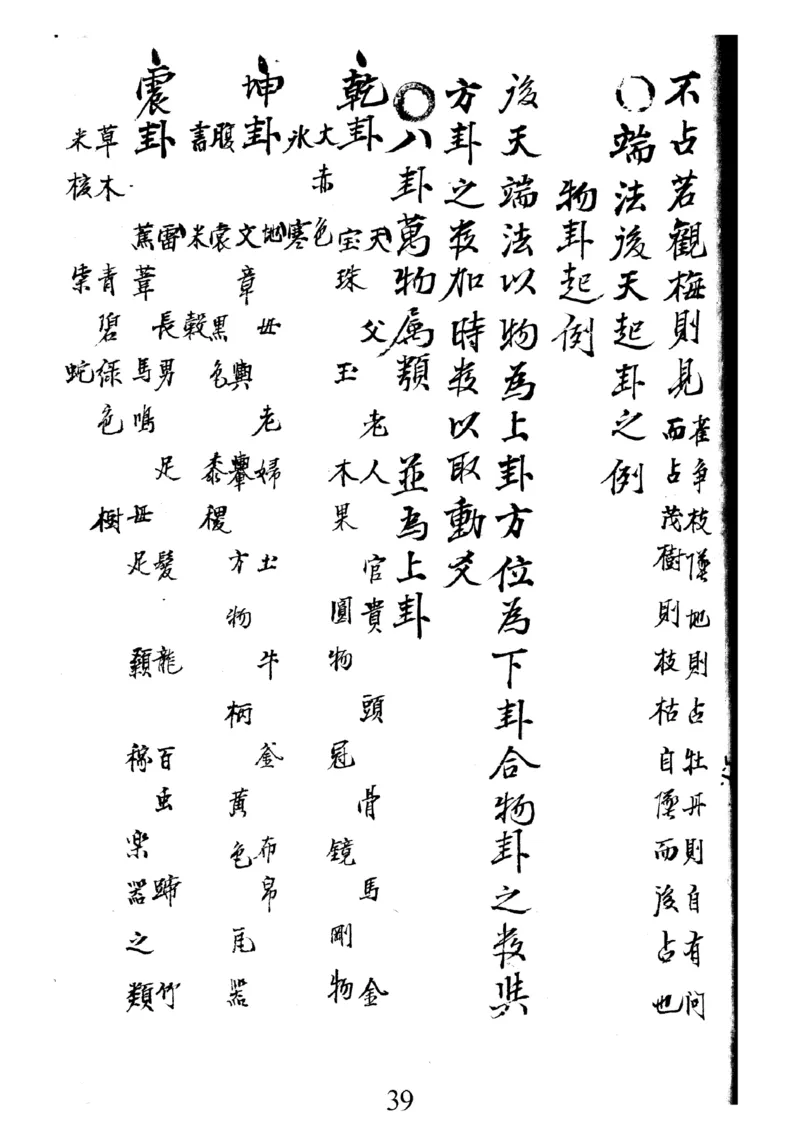 不占若觀梅則見
雀争枝墜地則占牡丹則自有問
而占茂樹則枝枯自墜而後占也
〇端法後天起卦之例
物卦起例
後天端法以物為上卦方位為下卦合物卦之数與
方卦之数加時数以取動爻
〇八卦萬物属類 並為上卦
乾卦
天 父 老人 官貴 頭 骨 馬 金
宝珠 玉 木果 圓物 冠 鏡 剛物
大赤色
氷寒
坤卦
地 母 老婦 土 牛 釜 布帛
文章 輿轝 方物 柄 黄色 瓦器
腹 裳 黑色 黍稷
書 米 穀
震卦
雷 長男 足 髮 龍 百虫 蹄 竹
葦 馬鳴 母足 顙 稼 楽器之類
草木 青碧緑色 樹
木核 柴 蛇
39